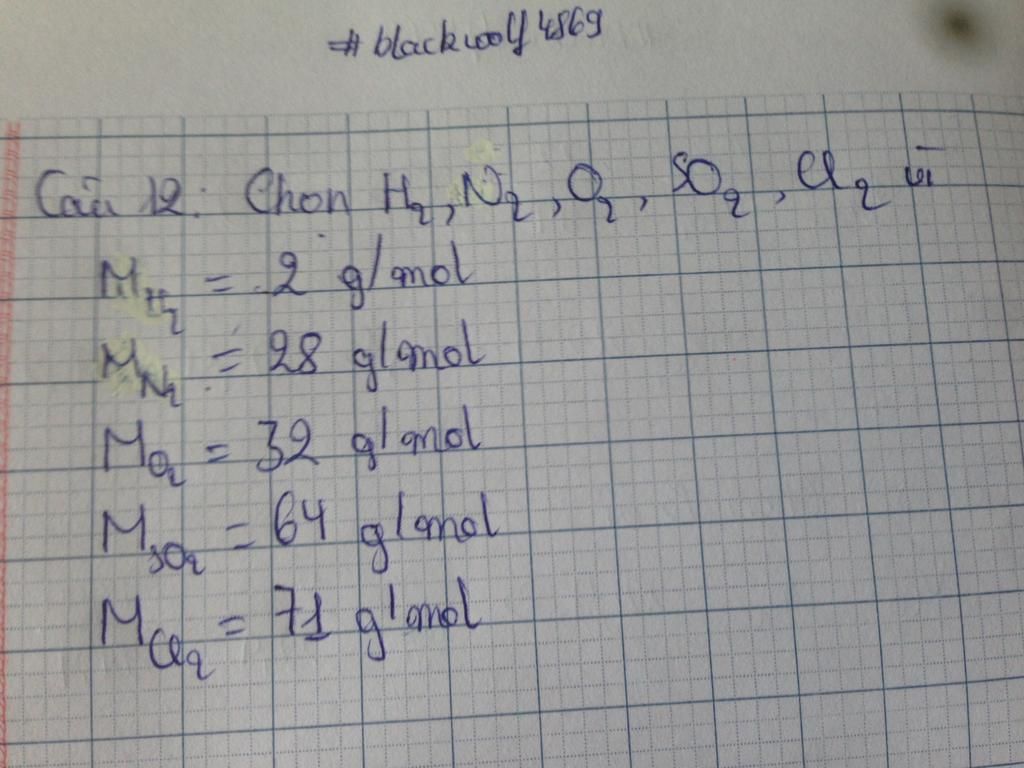 # blackwolf 4869
Câu 12: Chọn H2, N2, O2, SO2, Cl2 vì
MH2 = 2 g/mol
MN2 = 28 g/mol
MO2 = 32 g/mol
MSO2 = 64 g/mol
MCl2 = 71 g/mol